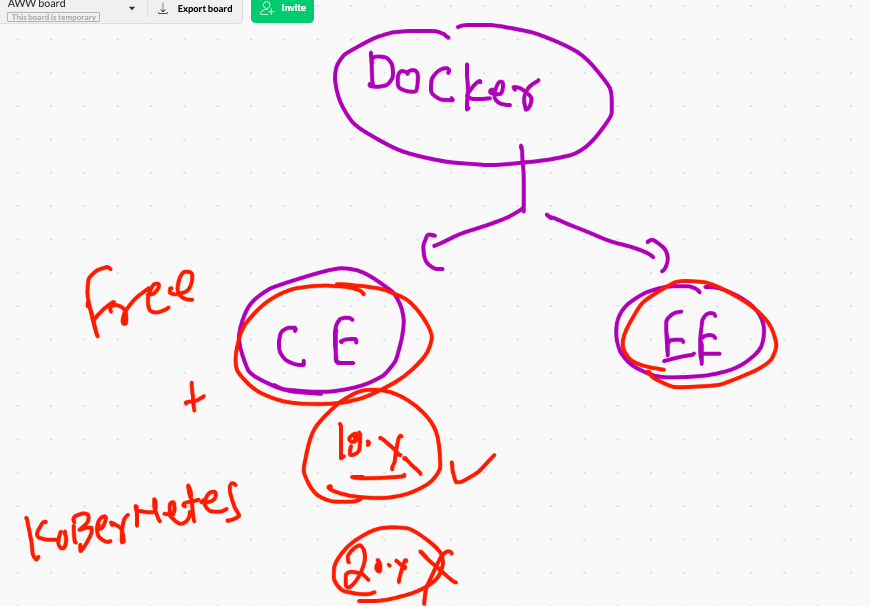 AWW board
This board is temporary
Export board
Invite
Docker
Free
CE
EE
+
19.x
KuBerNetes
20.x